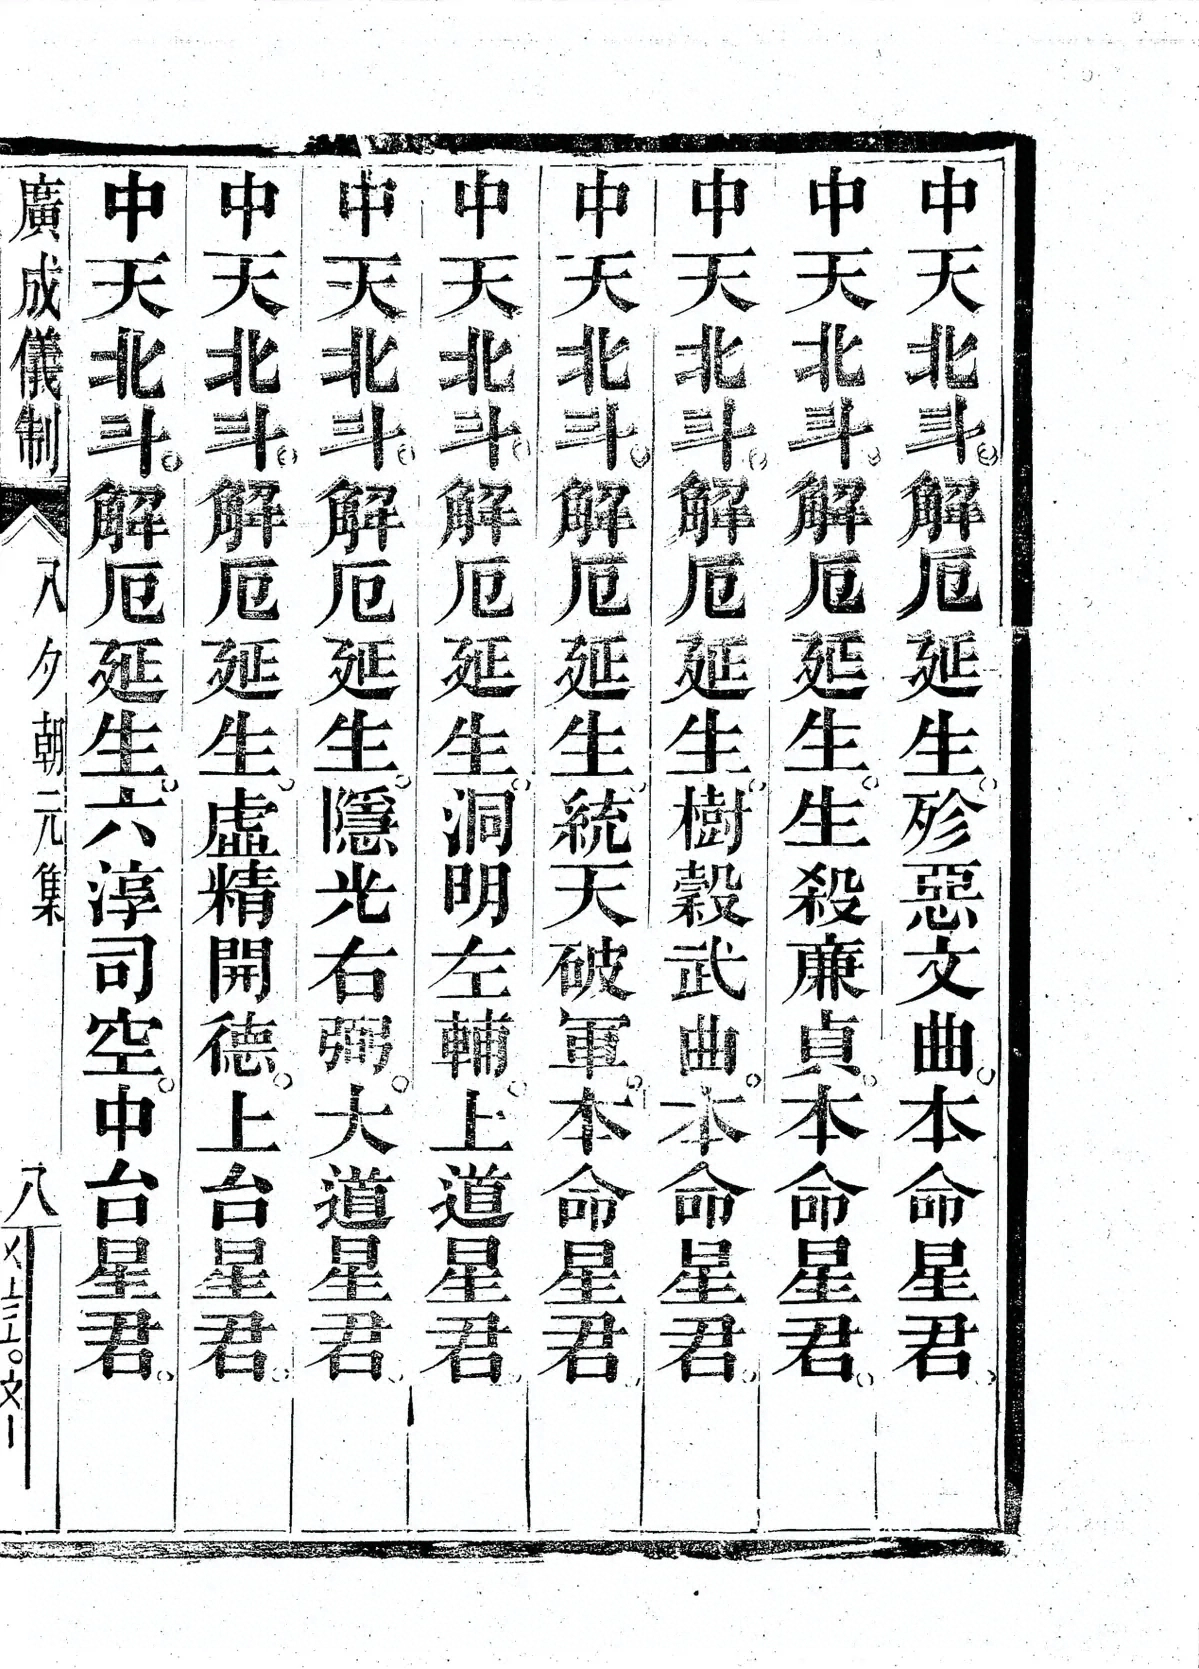 中天北斗。解厄延生。殄惡文曲。本命星君。
中天北斗。解厄延生。生殺廉貞。本命星君。
中天北斗。解厄延生。樹穀武曲。本命星君。
中天北斗。解厄延生。統天破軍。本命星君。
中天北斗。解厄延生。洞明左輔。上道星君。
中天北斗。解厄延生。隱光右弼。大道星君。
中天北斗。解厄延生。虛精開德。上台星君。
中天北斗。解厄延生。六淳司空。中台星君。
廣成儀制 夕朝元集 八